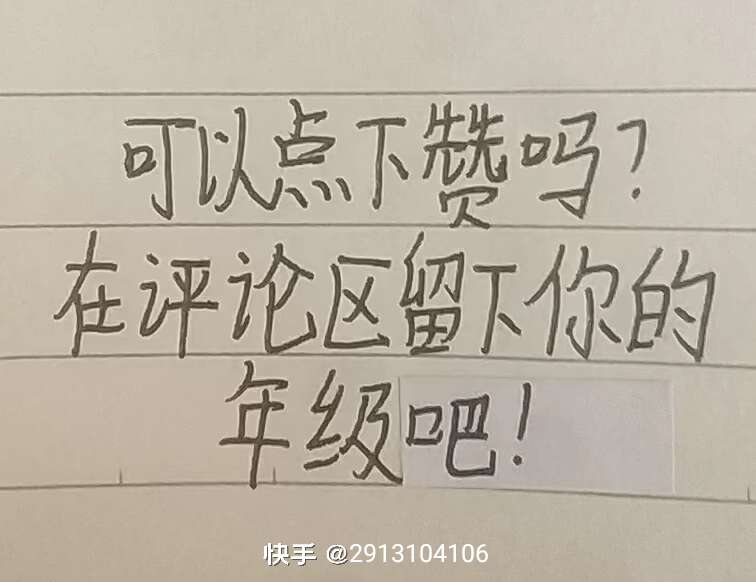 可以点下赞吗?
在评论区留下你的
年级吧!
快手 @2913104106